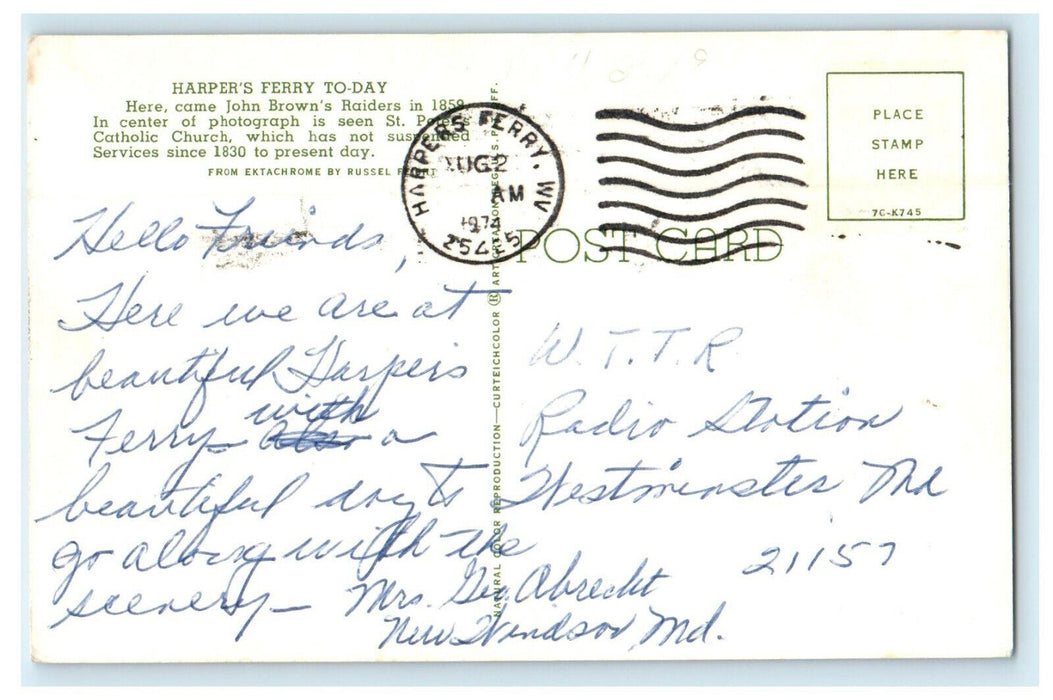 HARPER'S FERRY TO-DAY
Here, came John Brown's Raiders in 1859.
In center of photograph is seen St. Peter's
Catholic Church, which has not suspended
Services since 1830 to present day.
FROM EKTACHROME BY RUSSEL
HARPERS FERRY, WV
AUG 2
AM
1974
25425
PLACE
STAMP
HERE
7C-K745
POST CARD
NATURAL COLOR REPRODUCTION—CURTEICHCOLOR ® ART CREATION REG. U.S. PAT. OFF.
Hello Friends,
Here we are at
beautiful Harpers
Ferry – with a
beautiful day to
go along with the
scenery –
Mrs. Geo. Abrecht
New Windsor, Md.
W.T.T.R
Radio Station
Westminster Md
21157